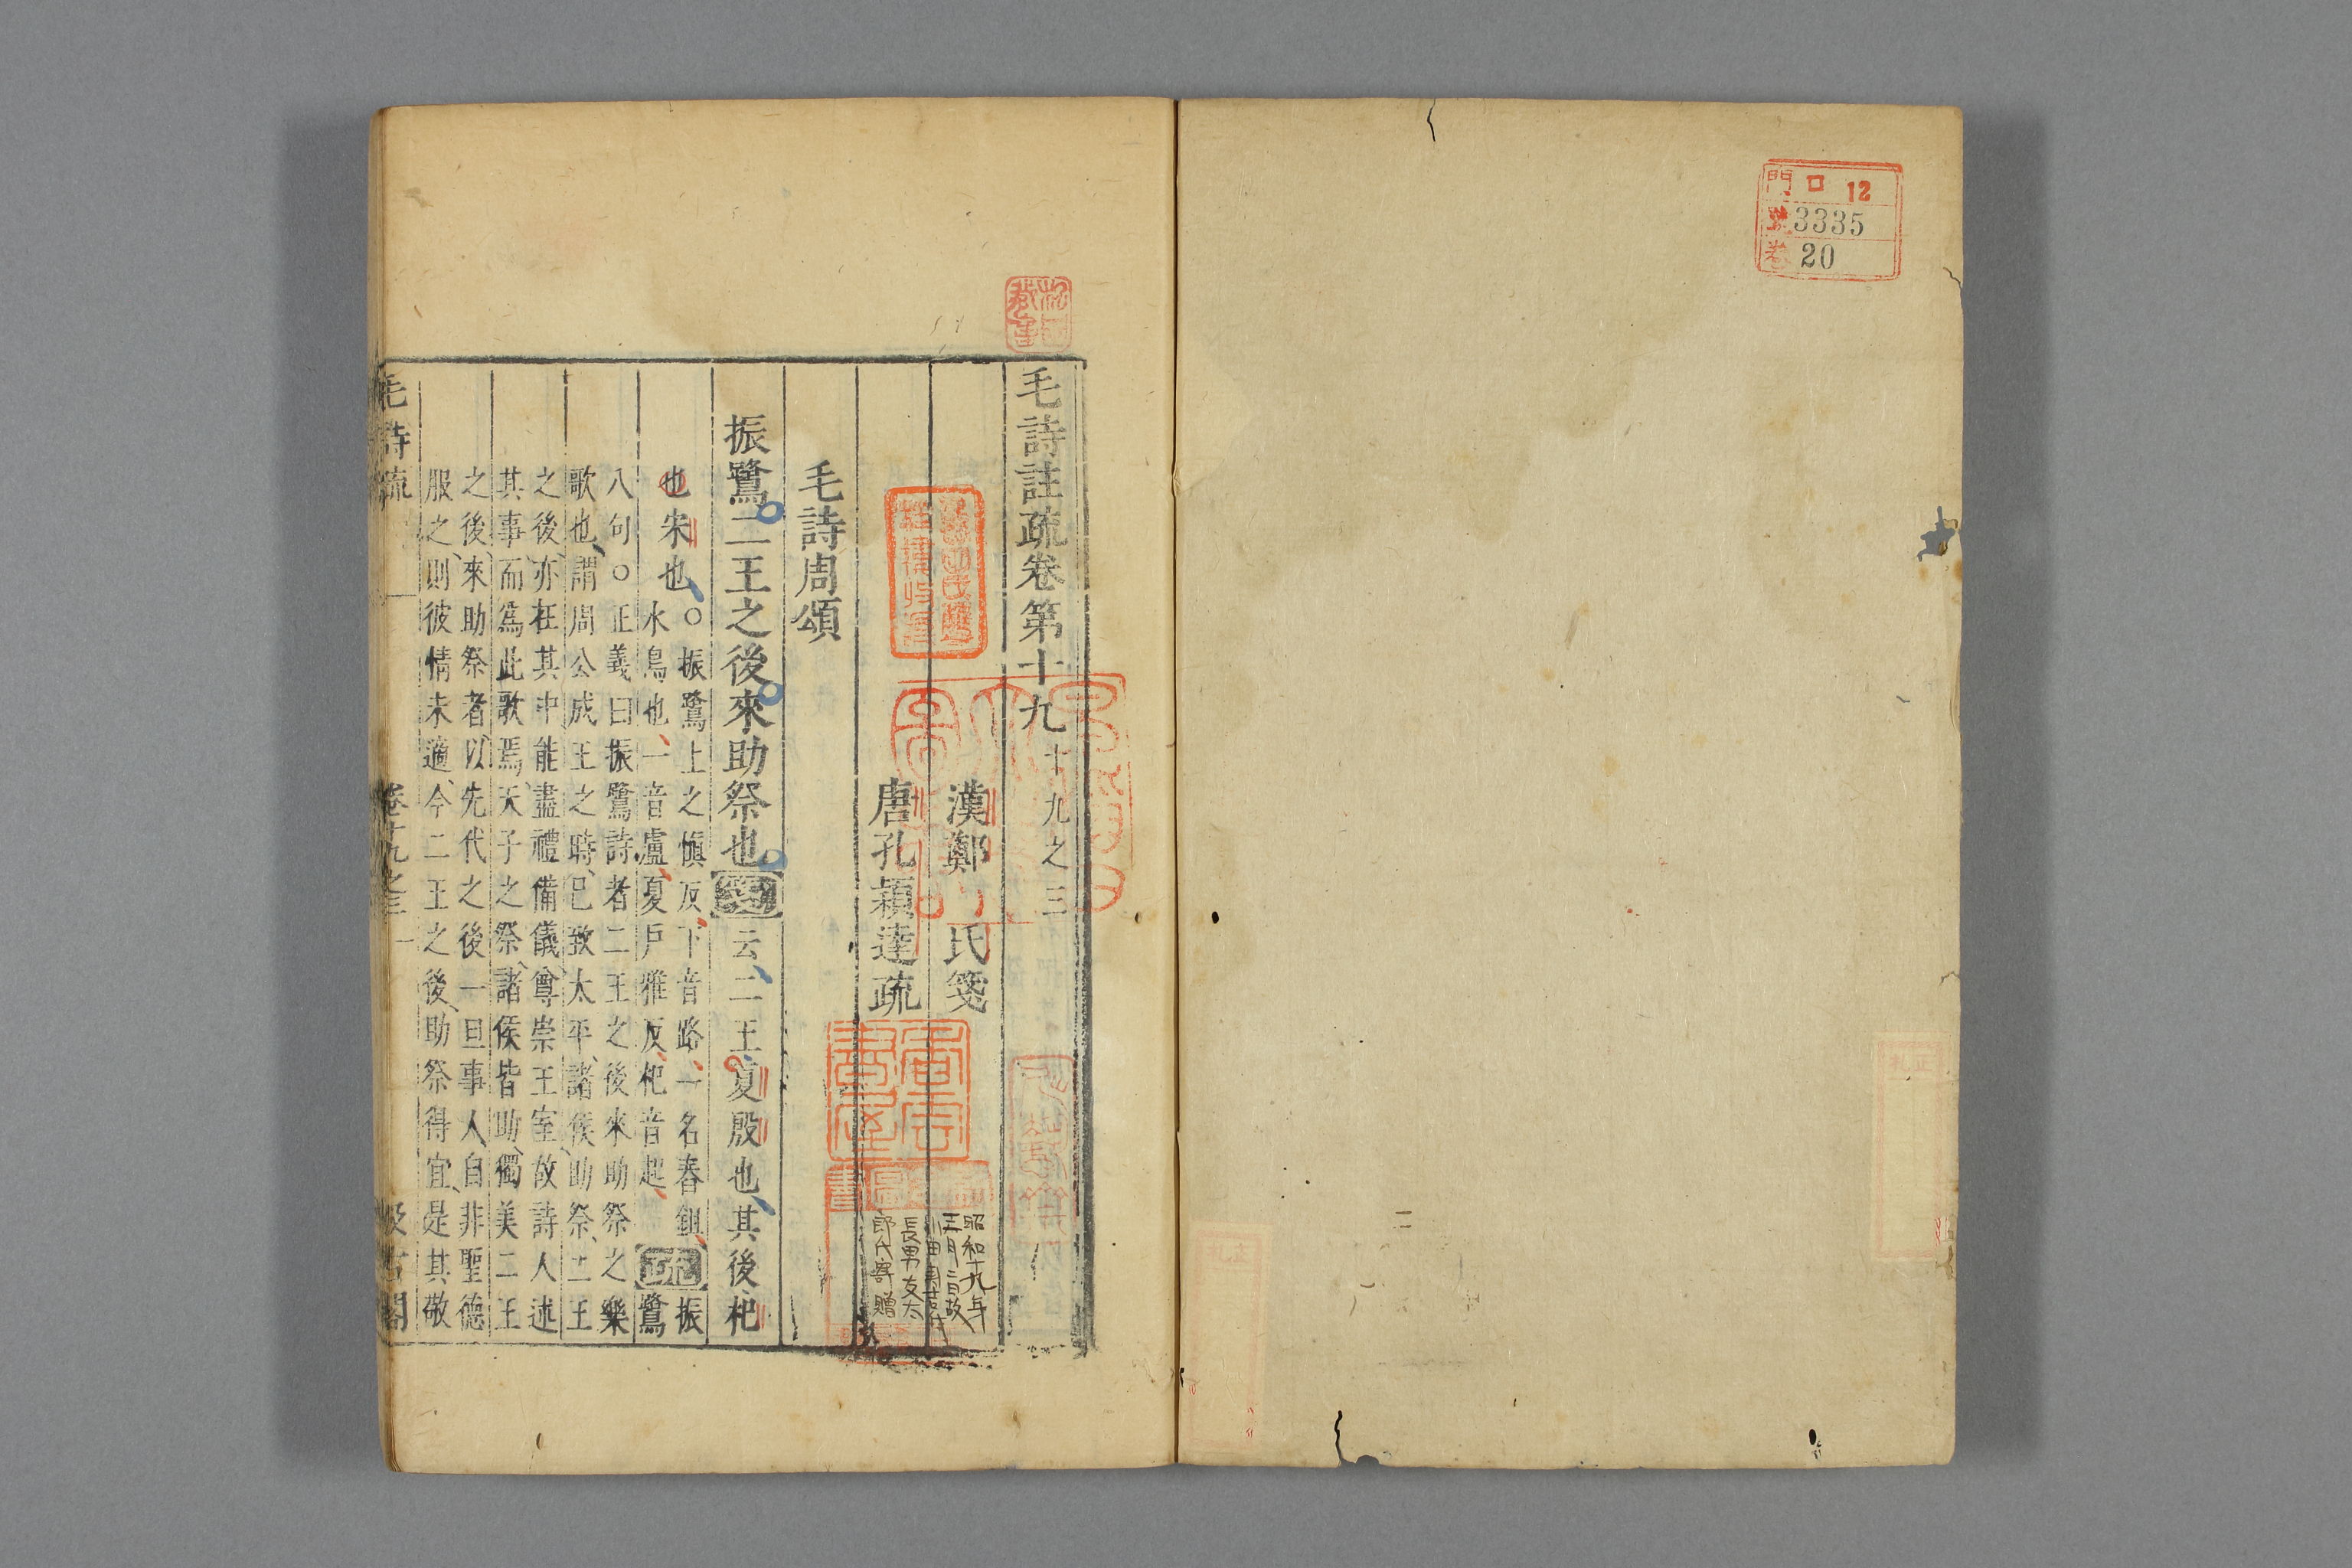 門 口 12
號 3335
卷 20
毛詩註疏卷第十九 十九之三
漢鄭氏箋
唐孔穎達疏
毛詩周頌
振鷺二王之後來助祭也箋云二王夏殷也其後杞
也宋也○振鷺上之愼反下音路一名舂鉏
水鳥也一音盧夏戶雅反杞音起疏振鷺
八句○正義曰振鷺詩者二王之後來助祭之樂
歌也謂周公成王之時已致太平諸侯助祭二王
之後亦在其中能盡禮備儀尊崇王室故詩人述
其事而爲此歌焉天子之祭諸侯皆助獨美二王
之後來助祭者以先代之後一旦事人自非聖德
服之則彼情未適今二王之後助祭得宜是其敬
毛詩疏 卷十九之三 一 汲古閣
昭和十九年
三月二日故
長男友太
郎氏寄贈